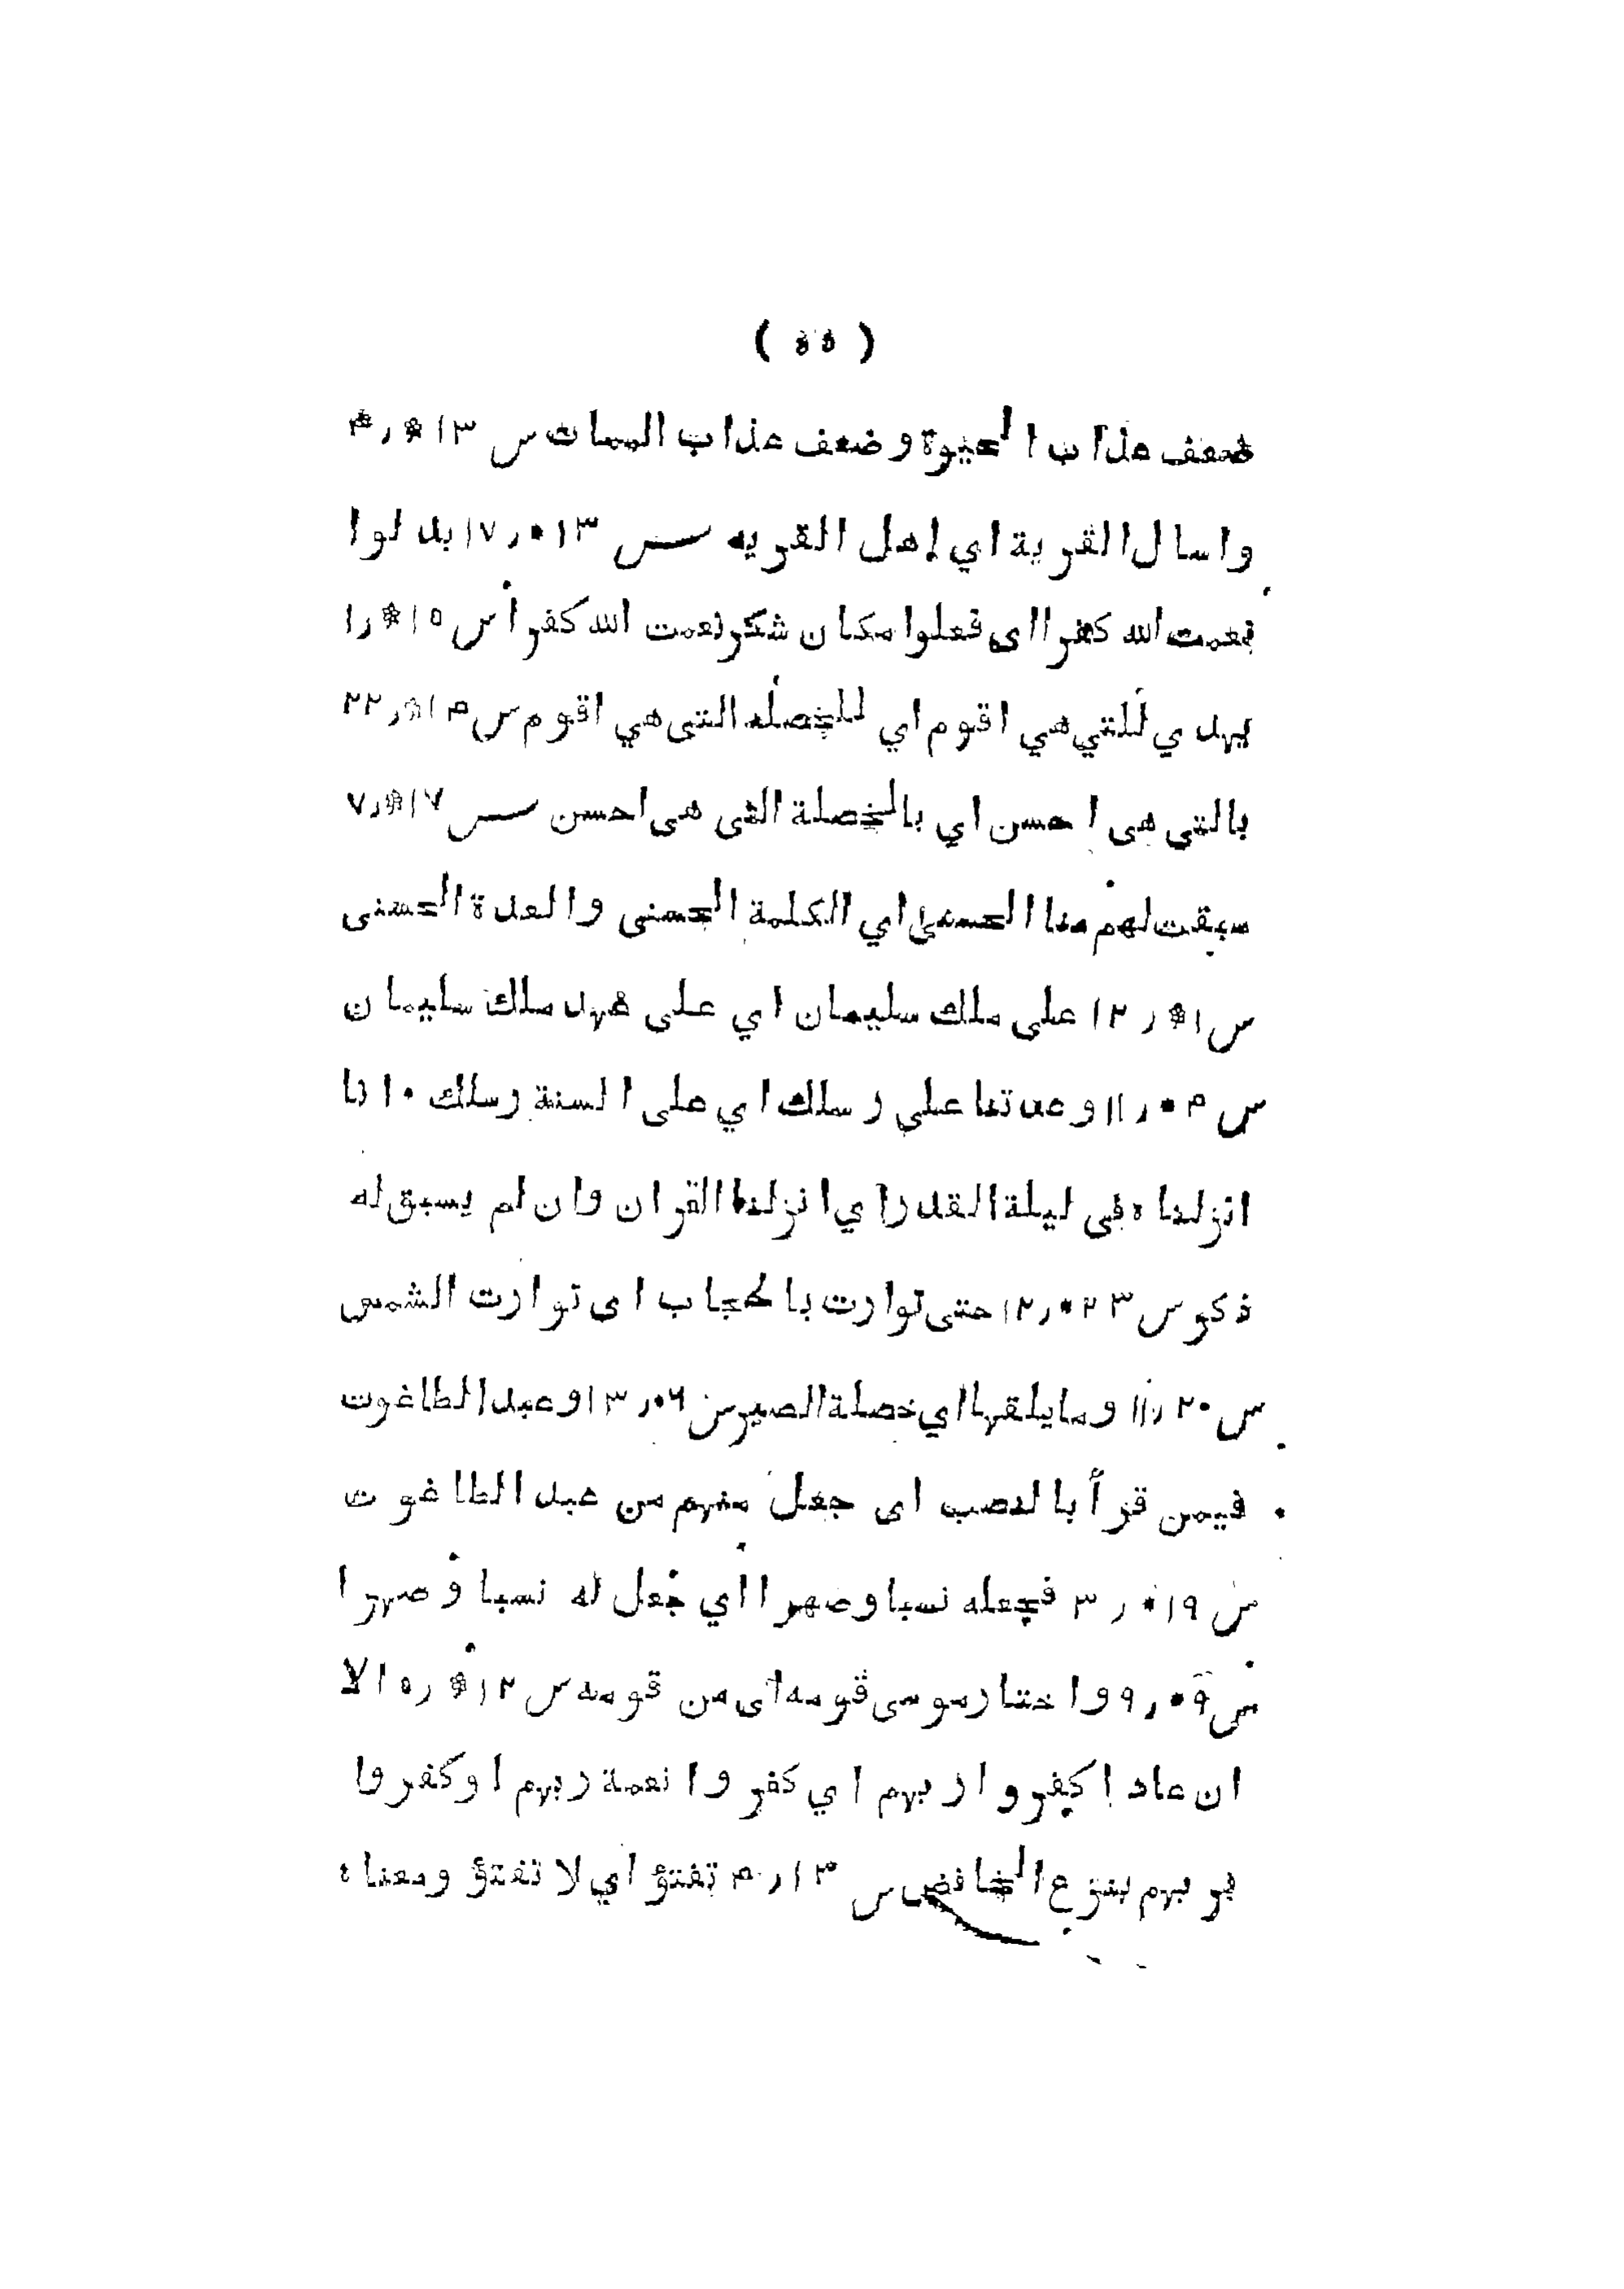 ( ٥٥ )
ضعف عذاب الحيوة وضعف عذاب الممات س ١٣*ر٣
واسال القرية اي اهل القريه س ١٣*ر١٧ بدلوا
نعمت الله كفرا اى فعلوا مكان شكر نعمت الله كفرا س ١٥*ر١
يهدي للتي هي اقوم اي للخصله التى هي اقوم س ١٤*ر٢٢
بالتى هى احسن اي بالخصلة التى هى احسن س ١٧*ر٧
سبقت لهم منا الحسنى اي الكلمة الحسنى والعدة الحسنى
س ١*ر١٢ على ملك سليمان اي على عهد ملك سليمان
س ٤*ر١١ وعدتنا على رسلك اي على السنة رسلك * انا
انزلناه فى ليلة القدر اي انزلنا القران وان لم يسبق له
ذكر س ٢٣*ر١٢ حتى توارت بالحجاب اى توارت الشمس
س ٢٠*ر١١ وما يلقها اي خصلة الصبر س ٦*ر١٣ وعبد الطاغوت
فيمن قرأ بالنصب اى جعل منهم من عبد الطاغوت
س ١٩*ر٣ فجعله نسبا وصهرا اي جعل له نسبا وصهرا
س ٩*ر٩ واختار موسى قومه اى من قومه س ١٢*ر٥ الا
ان عادا كفروا ربهم اي كفروا نعمة ربهم او كفروا
بربهم بنزع الخافض س ١٣ر٤ تفتؤ اي لا تفتؤ ومعناه